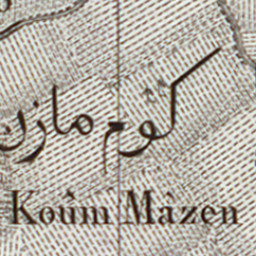 كوم مازن
Koûm Mâzen